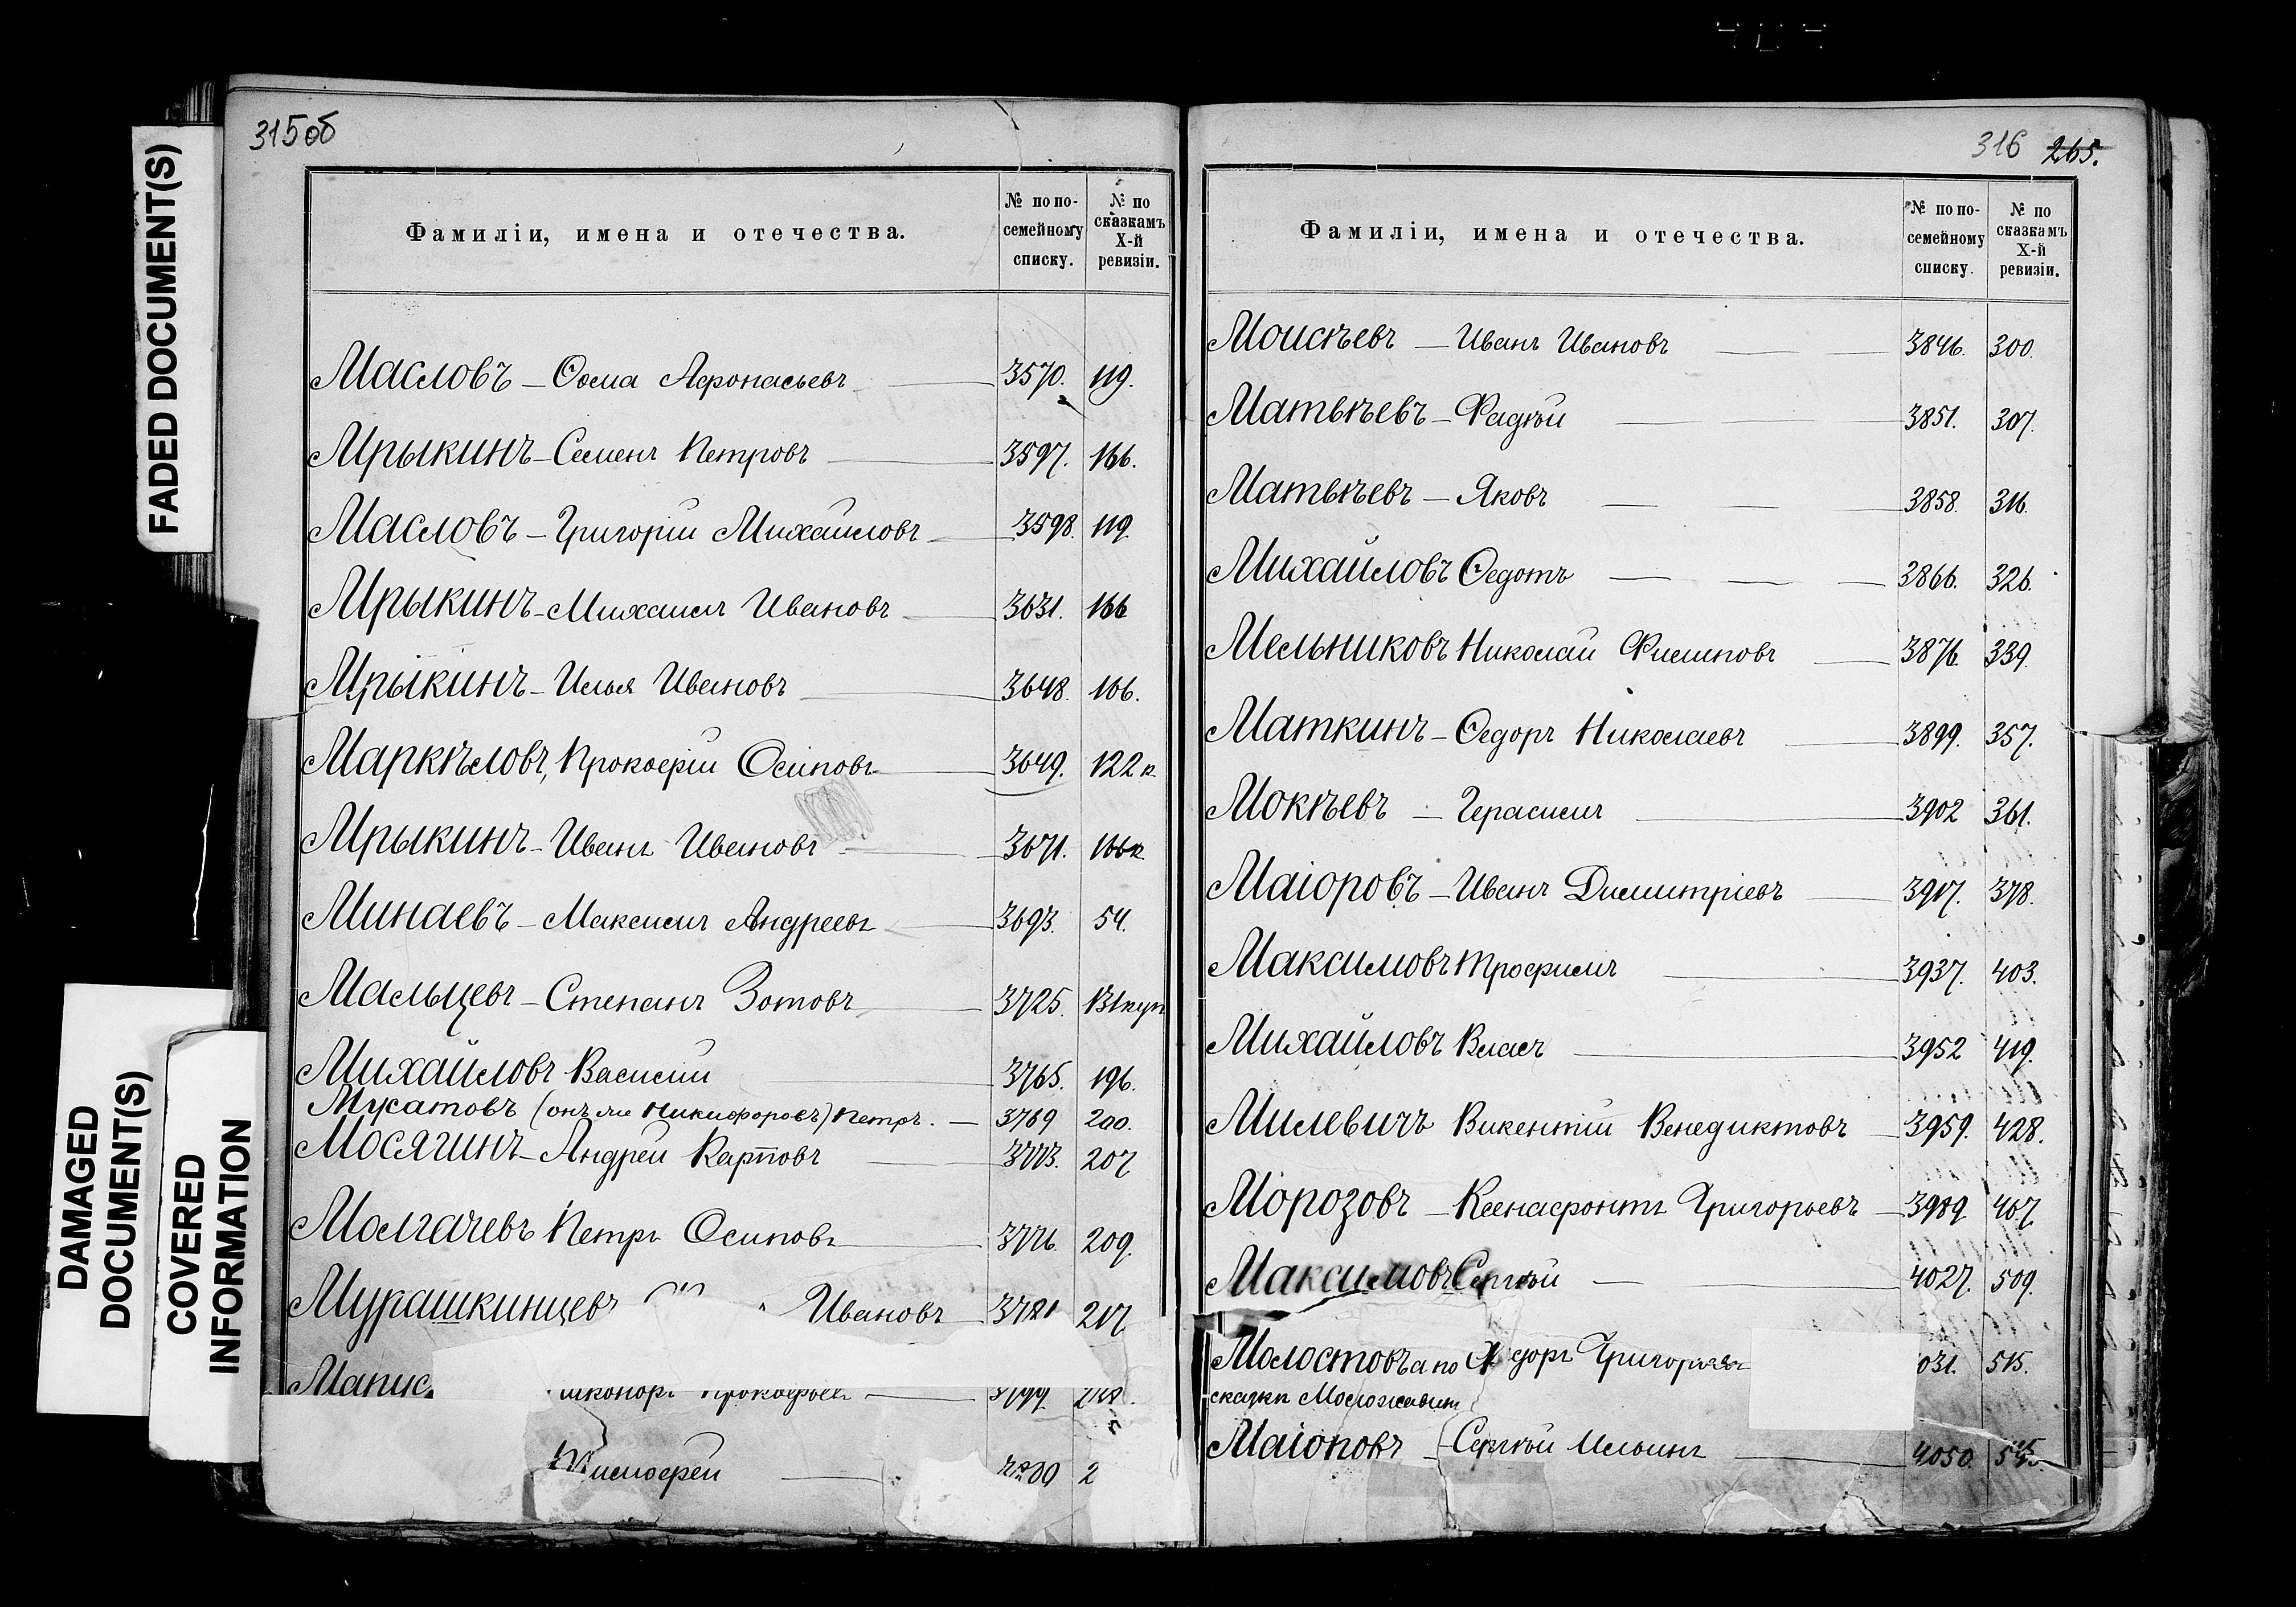 315об
FADED DOCUMENT(S)
DAMAGED
DOCUMENT(S)
COVERED
INFORMATION
Фамиліи, имена и отечества.
№ по по-
семейному
списку.
№ по
сказкамъ
X-й
ревизіи.
Масловъ — Ѳома Афонасьевъ 3570. 119.
Мрыкинъ — Семенъ Петровъ 3597. 166.
Масловъ — Григорій Михайловъ 3598. 119.
Мрыкинъ — Михаилъ Ивановъ 3631. 166
Мрыкинъ — Илья Ивановъ 3648. 166.
Маркѣловъ, Прокофій Осиповъ 3649. 122 к.
Мрыкинъ — Иванъ Ивановъ 3671. 166к.
Минаевъ — Максимъ Андреевъ 3693. 54.
Мальцевъ — Степанъ Зотовъ 3725.
Михайловъ Василій 3765. 196.
Мусатовъ (онъ же Никифоровъ) Петръ. — 3769 200.
Мосягинъ — Андрей Карповъ 3773. 207
Молгачевъ Петръ Осиповъ 3776. 209.
Мурашкинцевъ Ивановъ 3781 217
3799.
3809 2
316 265.
Фамиліи, имена и отечества.
№ по по-
семейному
списку.
№ по
сказкамъ
X-й
ревизіи.
Моисѣевъ — Иванъ Ивановъ 3846. 300.
Матвѣевъ — Фадѣй 3851. 307.
Матвѣевъ — Яковъ 3858. 316.
Михайловъ Ѳедотъ 3866. 326.
Мельниковъ Николай Филиповъ 3876. 339.
Маткинъ — Ѳедоръ Николаевъ 3899. 357.
Мокѣевъ — Герасимъ 3902 361.
Маіоровъ — Иванъ Димитріевъ 3917. 378.
Максимовъ Трофимъ 3937. 403.
Михайловъ Власъ 3952 419.
Милевичъ Викентій Венедиктовъ 3959. 428.
Морозовъ — Ксенафонтъ Григорьевъ 3989 467
Максимовъ Сергѣй 4027. 509.
Молостовъ а по Ѳедоръ Григорьевъ 031. 515.
сказкѣ
Маіоровъ — Сергѣй Ильинъ 4050. 545.